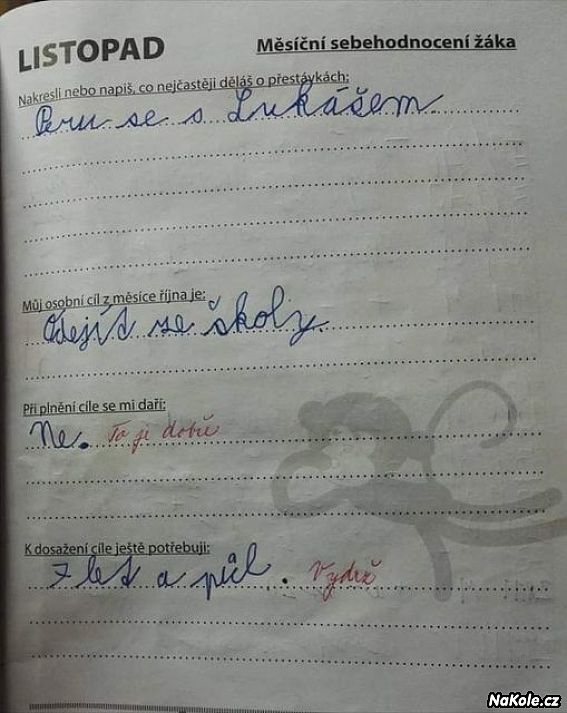 LISTOPAD
Měsíční sebehodnocení žáka
Nakresli nebo napiš, co nejčastěji děláš o přestávkách:
Peru se s Lukášem.
Můj osobní cíl z měsíce října je:
Odejít ze školy
Při plnění cíle se mi daří:
Ne. To je dobře
K dosažení cíle ještě potřebuji:
7 let a půl. Vydrž
NaKole.cz